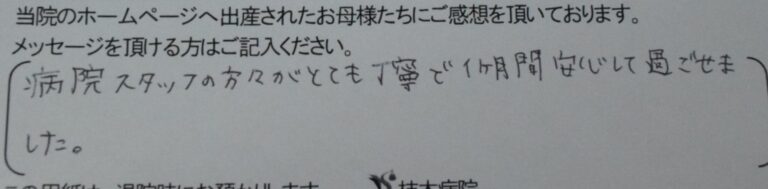 当院のホームページへ出産されたお母様たちにご感想を頂いております。
メッセージを頂ける方はご記入ください。
病院スタッフの方々がとても丁寧で1ヶ月間安心して過ごせま
した。
この用紙は、退院時にお預かりします